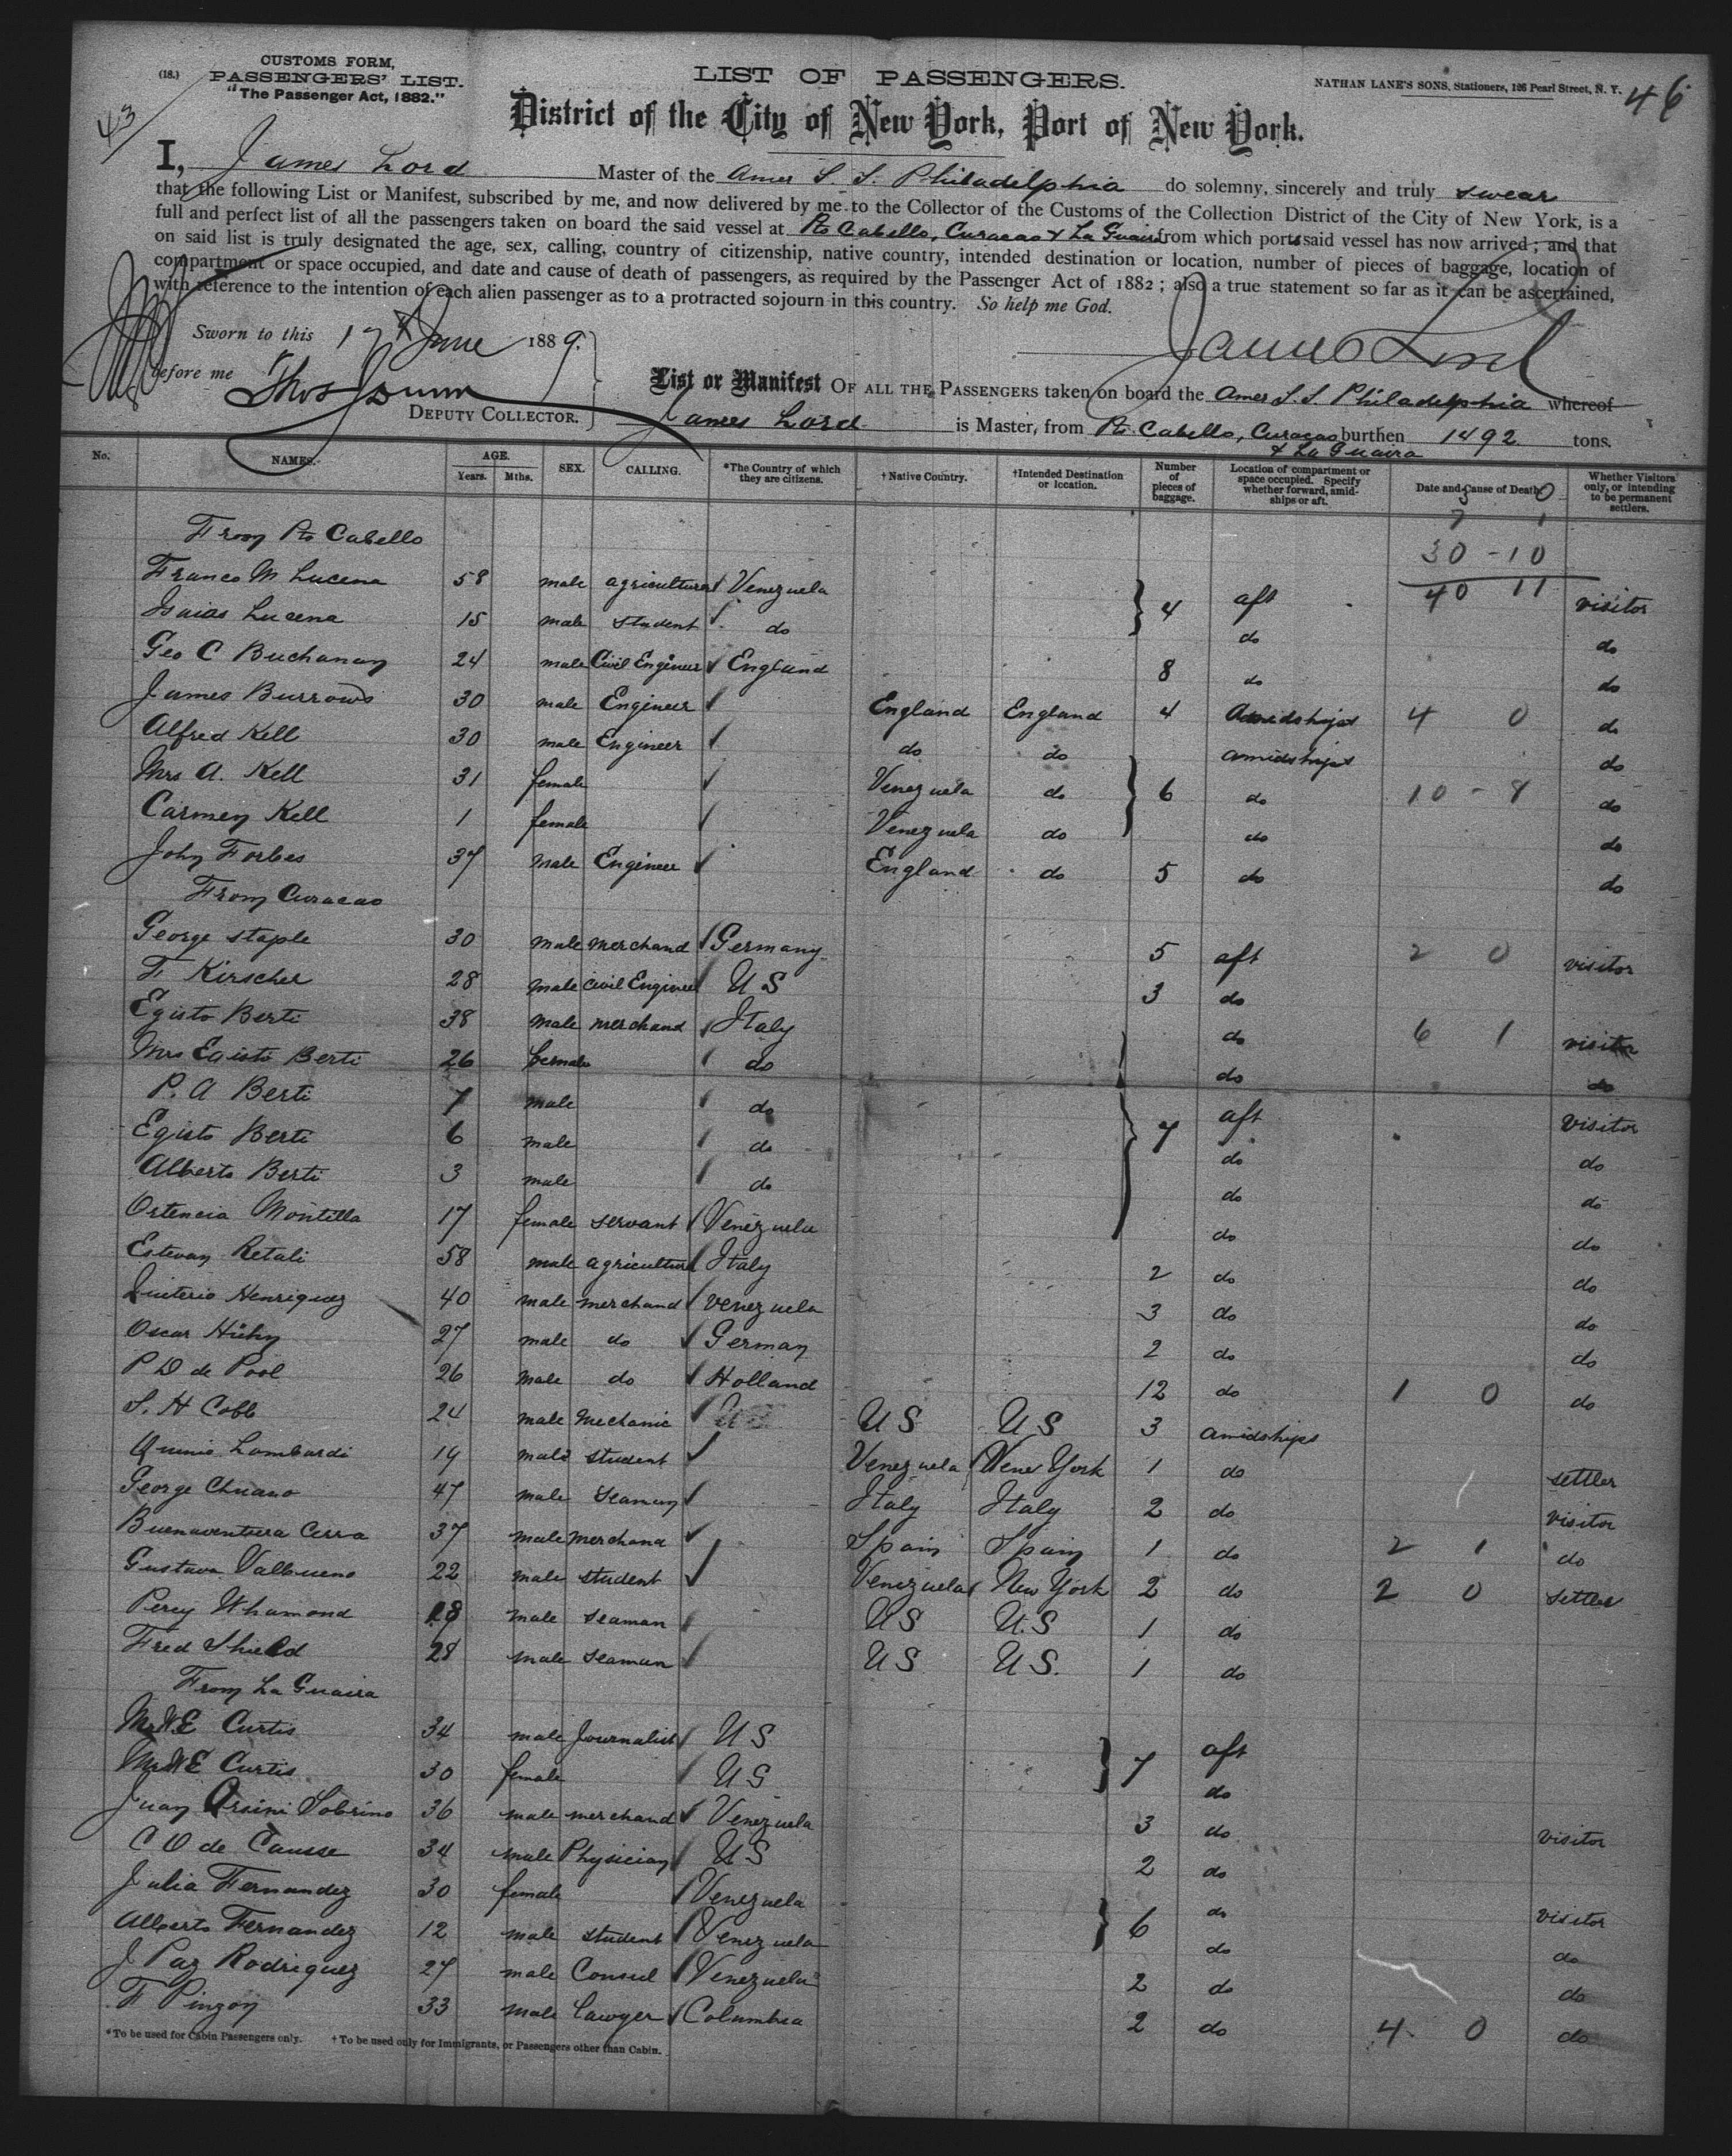 (18.)
CUSTOMS FORM,
PASSENGERS' LIST.
"The Passenger Act, 1882."
43
LIST OF PASSENGERS.
NATHAN LANE'S SONS, Stationers, 106 Pearl Street, N. Y.
46
District of the City of New York, Port of New York.
I, James Lord Master of the Amer S. S. Philadelphia do solemny, sincerely and truly swear
that the following List or Manifest, subscribed by me, and now delivered by me to the Collector of the Customs of the Collection District of the City of New York, is a
full and perfect list of all the passengers taken on board the said vessel at Pto Cabello, Curacao & La Guaira from which ports said vessel has now arrived; and that
on said list is truly designated the age, sex, calling, country of citizenship, native country, intended destination or location, number of pieces of baggage, location of
compartment or space occupied, and date and cause of death of passengers, as required by the Passenger Act of 1882; also a true statement so far as it can be ascertained,
with reference to the intention of each alien passenger as to a protracted sojourn in this country. So help me God.
Sworn to this 17 June 1889.
James Lord
before me Thos Dunn
DEPUTY COLLECTOR.
List or Manifest OF ALL THE PASSENGERS taken on board the Amer S. S. Philadelphia whereof
James Lord is Master, from Pto Cabello, Curacao & La Guaira burthen 1492 tons.
No. NAMES. AGE. Years. Mths. SEX. CALLING. *The Country of which they are citizens. †Native Country. †Intended Destination or location. Number of pieces of baggage. Location of compartment or space occupied. Specify whether forward, amidships or aft. Date and Cause of Death. Whether Visitors only, or intending to be permanent settlers.
3 0
7 1
30 - 10
40 11
From Pto Cabello
Franco M Lucena 58 male agricultural Venezuela 4 aft visitor
Isaias Lucena 15 male student do do do
Geo C Buchanan 24 male Civil Engineer England 8 do do
James Burrows 30 male Engineer England England 4 Amidships 4 0 do
Alfred Kell 30 male Engineer do do amidships do
Mrs A. Kell 31 female Venezuela do 6 do 10 - 8 do
Carmen Kell 1 female Venezuela do do do
John Forbes 37 male Engineer England do 5 do do
From Curacao
George Staple 30 male merchand Germany 5 aft 2 0 visitor
F Kirscher 28 male Civil Engineer U S 3 do
Egisto Berti 38 male merchand Italy do 6 1 visitor
Mrs Egisto Berti 26 female do do do
P. A Berti 7 male do 7 aft visitor
Egisto Berti 6 male do do do
Alberto Berti 3 male do do do
Ortencia Montilla 17 female servant Venezuela do do
Estevan Retali 58 male agricultural Italy 2 do do
Quiterio Henriquez 40 male merchand Venezuela 3 do do
Oscar 27 male do German 2 do do
P D de Pool 26 male do Holland 12 do 1 0 do
S. H Cobb 24 male Mechanic U S U S U S 3 amidships
Lombardi 19 male student Venezuela New York 1 do settler
George Chuano 47 male Seaman Italy Italy 2 do visitor
Buenaventura Cerra 37 male merchand Spain Spain 1 do 2 1 do
Gustavo Valbueno 22 male student Venezuela New York 2 do 2 0 settler
Percy Whamond 28 male seaman U S U.S 1 do
Fred Shield 28 male seaman U S U S. 1 do
From La Guaira
Mr W E Curtis 34 male Journalist U S 7 aft
Mrs W E Curtis 30 female U S do
Juan Orsini Sobrino 36 male merchand Venezuela 3 do visitor
C O de Causse 34 male Physician U S 2 do
Julia Fernandez 30 female Venezuela 6 do visitor
Alberto Fernandez 12 male student Venezuela do do
J Paz Rodriguez 27 male Consul Venezuela 2 do do
F Pinzon 33 male lawyer Columbia 2 do 4 0 do
*To be used for Cabin Passengers only. †To be used only for Immigrants, or Passengers other than Cabin.